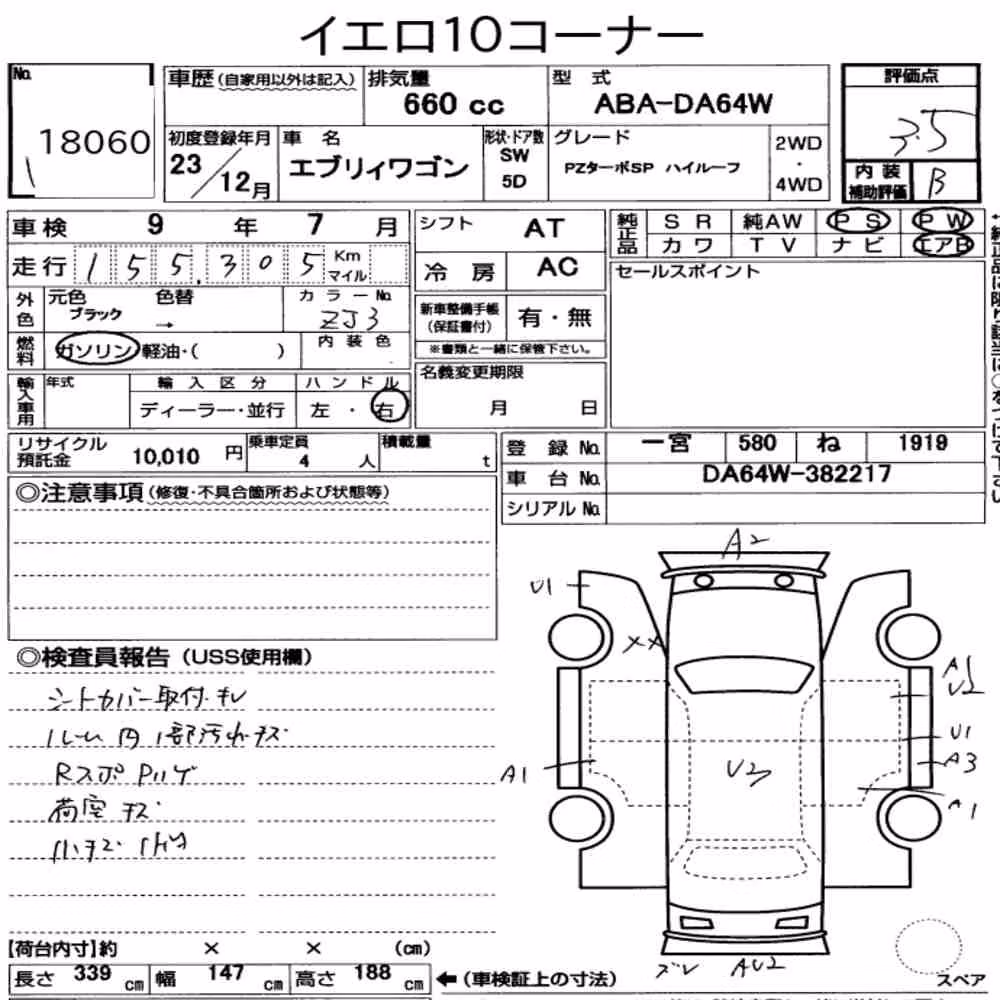 イエロ10コーナー
No. 18060
車歴(自家用以外は記入) 排気量 660 cc 型 式 ABA-DA64W 評価点 3.5
初度登録年月 23/12月 車 名 エブリィワゴン 形状・ドア数 SW 5D グレード PZターボSP ハイルーフ 2WD・4WD 内装補助評価 B
車検 9 年 7 月 シフト AT 純正品 SR 純AW PS PW
走行 155,305 Km マイル 冷房 AC カワ TV ナビ エアB
セールスポイント
外色 元色 ブラック 色替 → カラーNo. ZJ3 新車整備手帳(保証書付) 有・無
燃料 ガソリン/軽油・( ) 内装色 ※書類と一緒に保管下さい。
輸入車用 年式 輸入区分 ディーラー・並行 ハンドル 左・右 名義変更期限 月 日
リサイクル預託金 10,010 円 乗車定員 4 人 積載量 t
登録No. 一宮 580 ね 1919
車台No. DA64W-382217
シリアルNo.
◎注意事項(修復・不具合箇所および状態等)
A2
U1
XX
A1
U2
U1
A3
A1
A1
U3
◎検査員報告(USS使用欄)
シートカバー取付・キレ
ルーム内1部汚れ・キズ
Rスポ ハゲ
荷室 キズ
ズレ AU2
スペア
【荷台内寸】約 × × (cm)
長さ 339 cm 幅 147 cm 高さ 188 cm ←(車検証上の寸法)